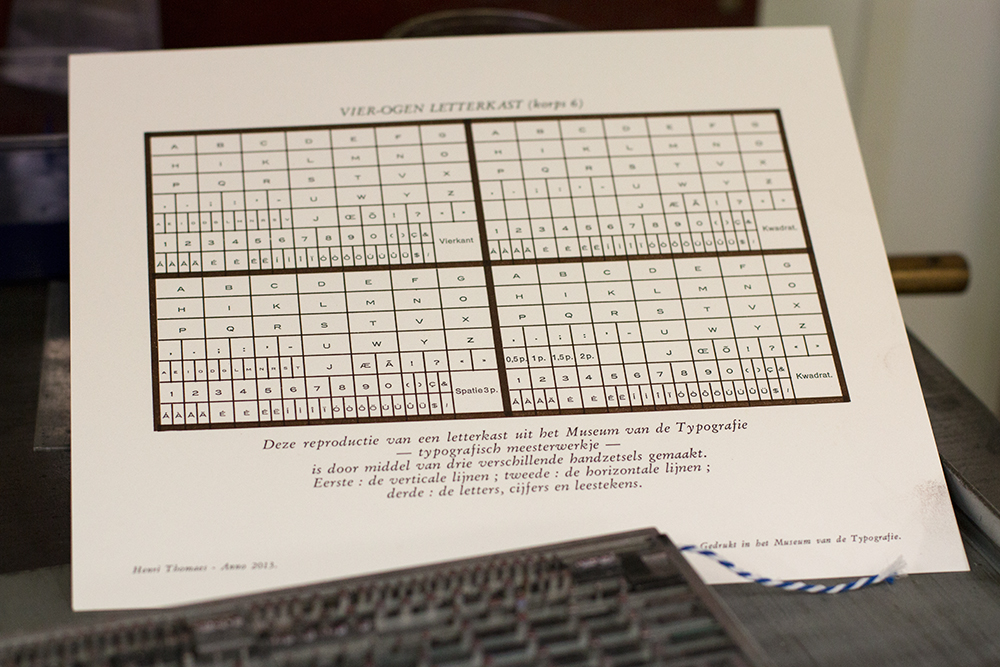 VIER-OGEN LETTERKAST (korps 6)
A B C D E F G
H I K L M N O
P Q R S T V X
U W Y Z
J Œ Ö ! ?
1 2 3 4 5 6 7 8 9 0 ( ) Ç & Vierkant
A B C D E F G
H I K L M N O
P Q R S T V X
U W Y Z
J Æ Ä ! ?
1 2 3 4 5 6 7 8 9 0 ( ) Ç & Kwadrat.
A B C D E F G
H I K L M N O
P Q R S T V X
, . ; : ' - U W Y Z
J Æ Ä ! ?
1 2 3 4 5 6 7 8 9 0 ( ) Ç & Spatie 3 p.
A B C D E F G
H I K L M N O
P Q R S T V X
, . ; : ' - U W Y Z
0,5 p. 1 p. 1,5 p. 2 p. J Œ Ö ! ?
1 2 3 4 5 6 7 8 9 0 ( ) Ç & Kwadrat.
Deze reproductie van een letterkast uit het Museum van de Typografie
— typografisch meesterwerkje —
is door middel van drie verschillende handzetsels gemaakt.
Eerste : de verticale lijnen ; tweede : de horizontale lijnen ;
derde : de letters, cijfers en leestekens.
Gedrukt in het Museum van de Typografie.
Henri Thomaes - Anno 2013.